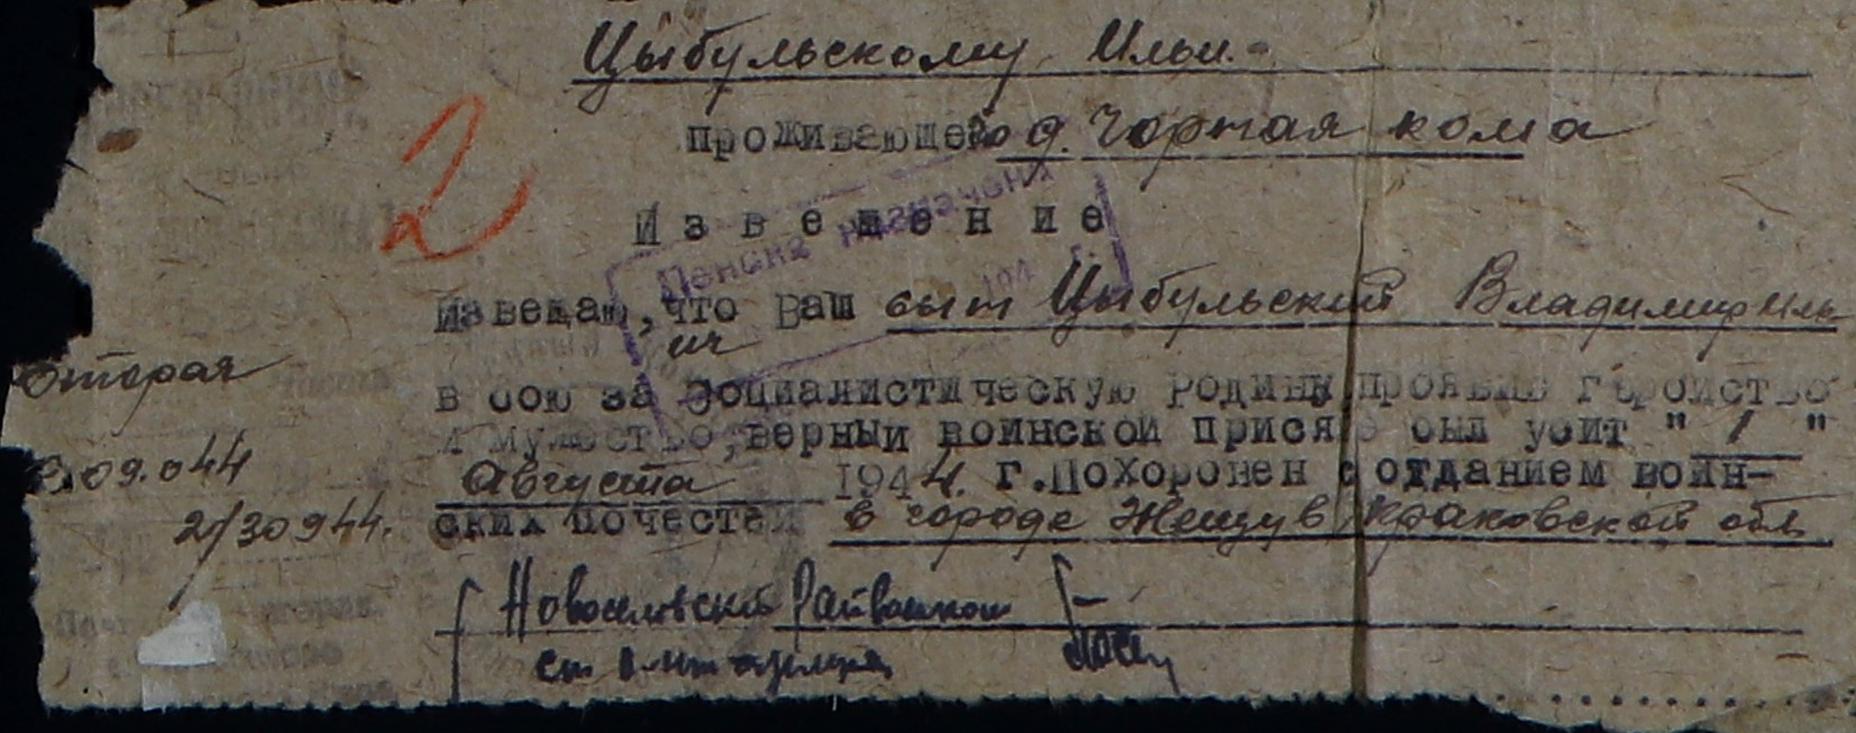 Цыбульскому Ильи.-
проживающего д. Чорная кома
2
Извещение
Пенсия назначена
194 г.
Извещаю, что Ваш сын Цыбульский Владимир Иль
ич
вторая
в бою за Социалистическую Родину, проявив геройство
и мужество, верный воинской присяге был убит " 1 "
09.044
Августа 1944. г. Похоронен с отданием воин-
21/30944.
ских почестей в городе Жешув, Краковской обл
Новоселовский Райвоенком
ст лейтенант